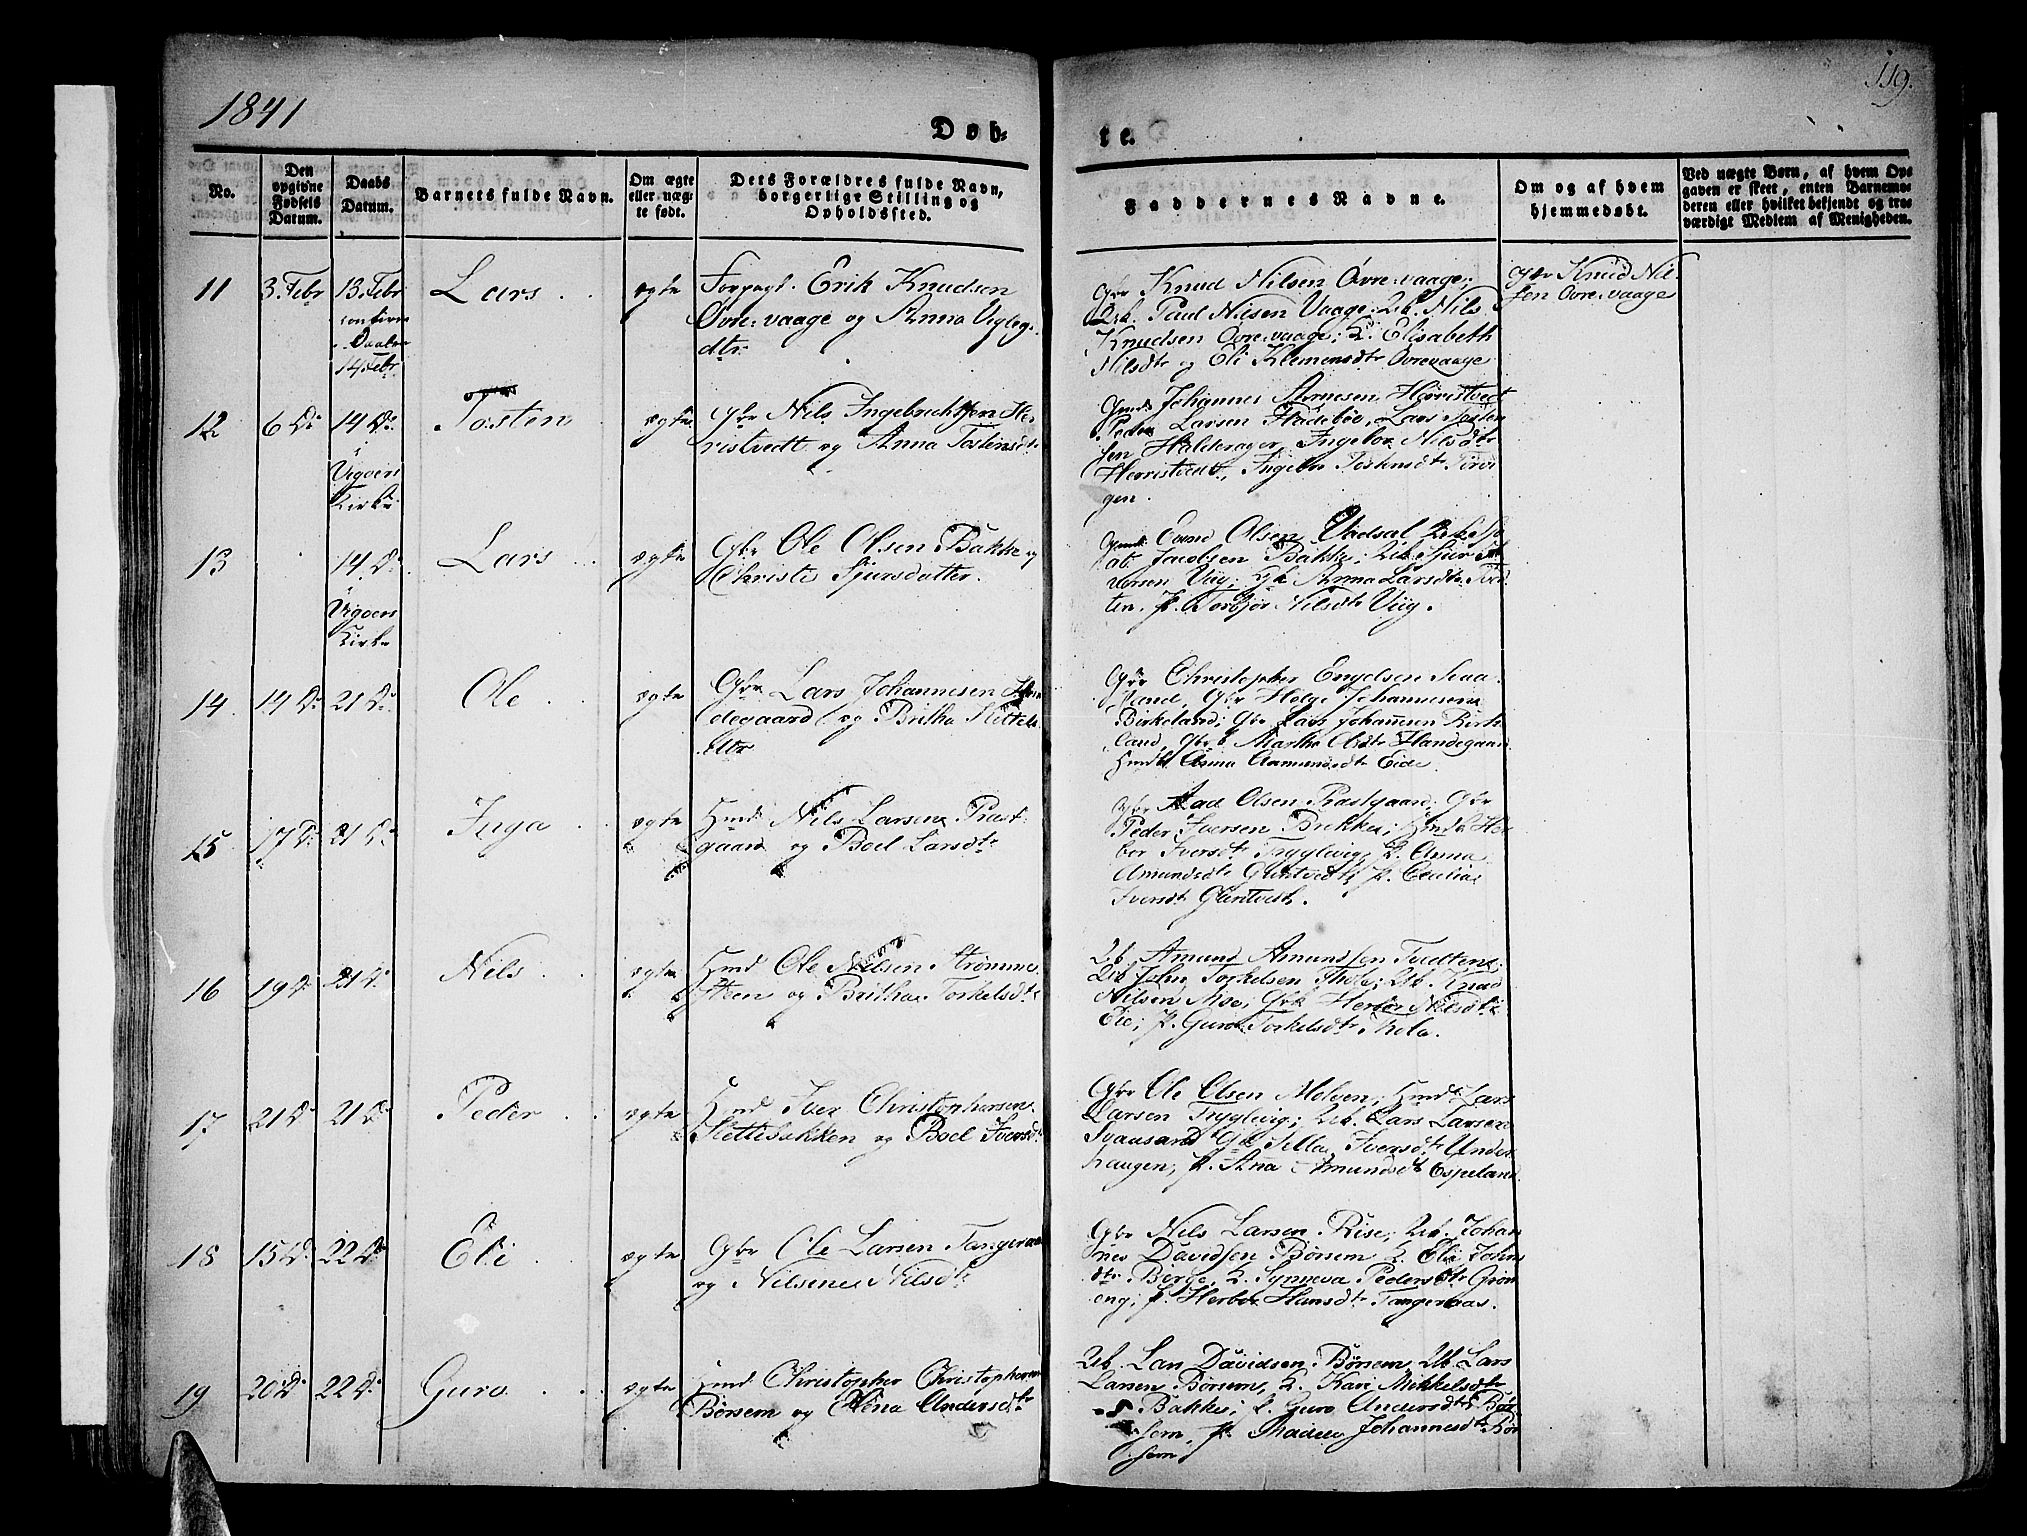 1841
119.
Døb-
te.
No.
Den opgivne Fødsels Datum.
Daabs Datum.
Barnets fulde Navn.
Om ægte eller uægte født.
Dets Forældres fulde Navn, borgerlige Stilling og Opholdssted.
Faddernes Navne.
Om og af hvem hjemmedøbt.
Ved uægte Børn, af hvem Opgaven er skeet, enten Barnemoderen eller hvilket bekjendt og troværdigt Medlem af Menigheden.
11
3 Febr
13 Febr
14 Febr
Lars
ægte
Forpagt. Erik Knudsen
Øvre-vaage og Anna Vigleg
dtr
Gbr Knud Nilsen Øvre-vaage;
Paul Nilsen Vaage; Ub. Nils
Knudsen Øvre-vaage; K. Elisabeth
Nilsdtr og Eli Klemensdtr Øvrevaage
Gbr Knud Nil-
sen Øvre-vaage
12
6 Do
14 Do
i
Kirke
Tosten
ægte
Gbr Nils Ingebrichtsen He-
ristvedt og Anna Tostensdtr
Johannes Arnesen Heristvedt
Peder Larsen Flådebøe, Lars Tosten
sen Halderager, Ingebor Nilsdtr
Herristvedt, Ingebor Tostensdtr
gen.
13
14 Do
i
Kirke
Lars
ægte
Gbr Ole Olsen Bakke og
Christi Sjursdatter.
Olsen Vadsal
Jacobsen Bakke; Ub Sjur
Viig; Anna Larsdtr
ten. P. Torbjør Nilsdtr Viig.
14
14 Do
21 Do
Ole
ægte
Gbr Lars Johannesen Han
degaard og Britha Kittels
dtr
Gbr Christopher Engelsen
land, Gbr Helge Johannesen
Birkeland; Gbr Lars Johannesen Birke
land, Gbr k Martha Olsdtr Handegaar
Hmdk Anna Aamundsdtr Eide.
15
17 Do
21 Do
Inga
ægte
Hmd Nils Larsen Præst
gaard og Boel Larsdtr
Gbr Aad Olsen Præstgaard; Gbr
Peder Iversen Brekke; Hmdk Her
bor Iversdtr Tryglevig, K. Anna
Amundsdtr Glintvedt, P. Cecilia
Iversdtr Glintvedt.
16
19 Do
21 Do
Nils
ægte
Hmd Ole Nilsen Strømme
steen og Britha Torkelsdtr
Ub. Amund Amundsen Tudten;
Ub John Torkelsen Thola; Ub. Knud
Nilsen Moe; Gbrk Herbor Nilsdtr
Eie; P. Guro Torkelsdtr Thola.
17
21 Do
21 Do
Peder
ægte
Hmd Iver Christophersen
Slettebakken og Boel Iversdtr
Gbr Ole Olsen Molven; Hmd Lars
Larsen Tryglevig; Ub. Lars Larsen
Svaasand Sella Iversdtr Under
haugen, P. Ana Amundsdtr Espeland.
18
15 Do
22 Do
Eli
ægte
Gbr Ole Larsen Tangeraas
og Nilsene Nilsdtr
Gbr Nils Larsen Rise; Ub. Johan
nes Davidsen Børsem K. Eli Johns
dtr Berge, K. Synneva Pedersdtr Grøn
eng; P. Herbor Hansdtr Tangeraas.
19
20 Do
22 Do
Guro
ægte
Hmd Christopher Christophersen
Børsem og Elena Andersdtr
Ub. Lars Davidsen Børsem, Ub Lars
Larsen Børsem, K. Kari Mikkelsdtr
Bakke; P. Guro Andersdtr Bør
sem, P. Johannesdtr Bør
sem